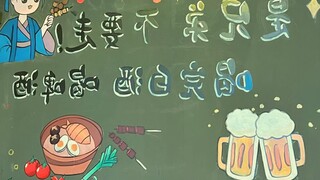 是兄弟 不要走!
喝完白酒 喝啤酒